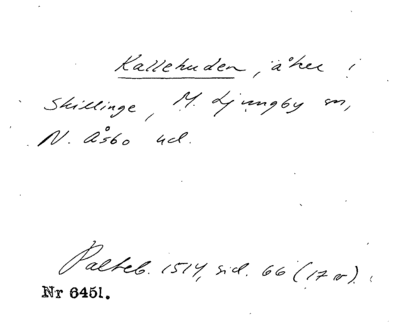 Kallehuden, åker i
Skillinge, M. Ljungby sn,
N. Åsbo hd.
Palteb. 1514, sid. 66 (17 v).
Nr 6451.